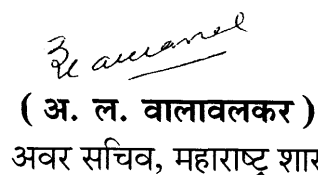 ( अ. ल. वालावलकर )
अवर सचिव, महाराष्ट्र शास